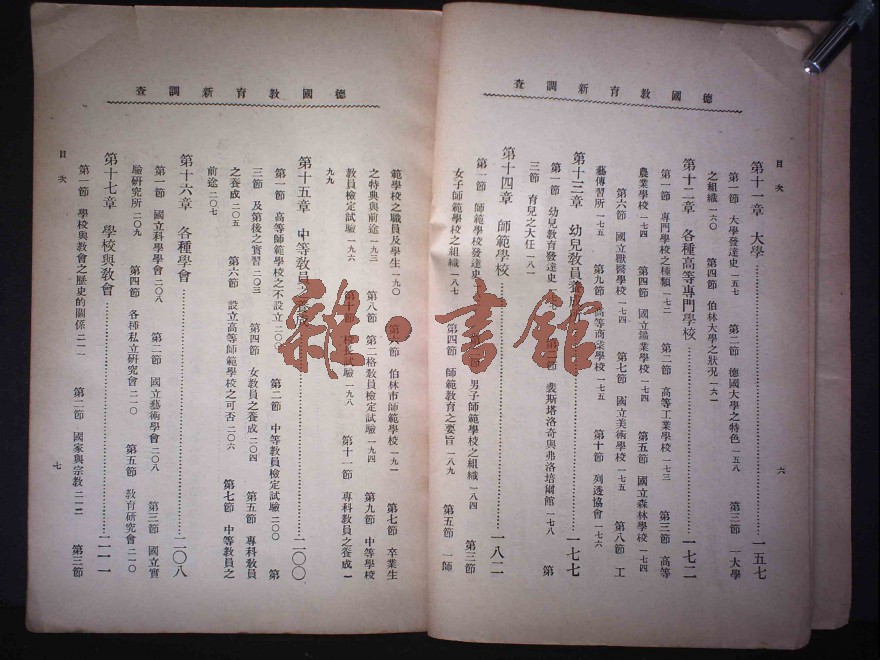 德國教育新調查
目次
第十一章 大學 一五七
第一節 大學發達史一五七 第二節 德國大學之特色一五八 第三節 一大學
之組織一六〇 第四節 伯林大學之狀況一六一
第十二章 各種高等專門學校 一七二
第一節 專門學校之種類一七二 第二節 高等工業學校一七三 第三節 高等
農業學校一七四 第四節 國立鑛業學校一七四 第五節 國立森林學校一七四
第六節 國立獸醫學校一七四 第七節 國立美術學校一七五 第八節 工
藝傳習所一七五 第九節 高等商業學校一七五 第十節 列透協會一七六
第十三章 幼兒教員養成所 一七七
第一節 幼兒教育發達史一七七 第二節 裴斯塔洛奇與弗洛培爾館一七八 第
三節 育兒之大任一八一
第十四章 師範學校 一八二
第一節 師範學校發達史 男子師範學校之組織一八四 第三節
女子師範學校之組織一八七 第四節 師範教育之要旨一八九 第五節 一師
六
德國教育新調查
範學校之職員及學生一九〇 第六節 伯林市師範學校一九一 第七節 卒業生
之特典與前途一九三 第八節 第二格教員檢定試驗一九四 第九節 中等學校
教員檢定試驗一九六 第十節 校長試驗一九八 第十一節 專科教員之養成一
九九
第十五章 中等教員之養成 二〇〇
第一節 高等師範學校之不設立二〇〇 第二節 中等教員檢定試驗二〇〇 第
三節 及第後之實習二〇三 第四節 女教員之養成二〇四 第五節 專科教員
之養成二〇五 第六節 設立高等師範學校之可否二〇六 第七節 中等教員之
前途二〇七
第十六章 各種學會 二〇八
第一節 國立科學學會二〇八 第二節 國立藝術學會二〇八 第三節 國立實
驗研究所二〇九 第四節 各種私立研究會二一〇 第五節 教育研究會二一〇
第十七章 學校與教會 二一一
第一節 學校與教會之歷史的關係二一一 第二節 國家與宗教二一二 第三節
目次
七
雜·書館